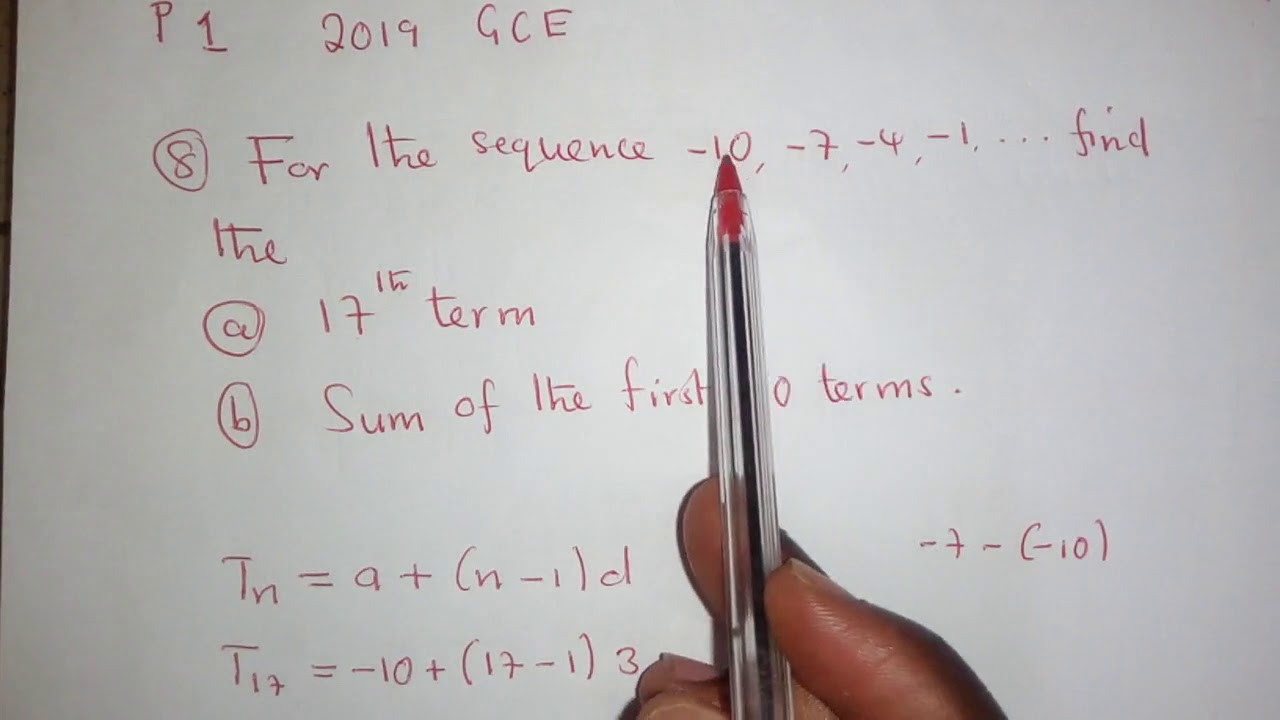 P 1 2019 GCE
⑧ For the sequence -10, -7, -4, -1, ... find
the
ⓐ 17th term
ⓑ Sum of the first 0 terms.
-7 - (-10)
Tn = a + (n - 1) d
T17 = -10 + (17 - 1) 3